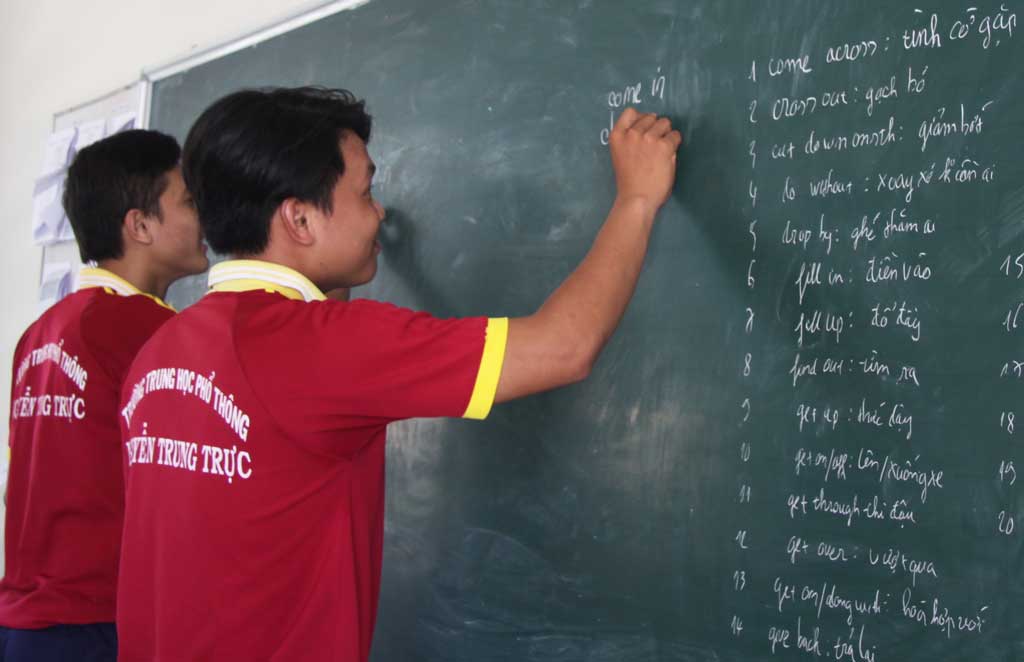 come in
1 come across: tình cờ gặp
2 cross out: gạch bỏ
3 cut down on sth: giảm bớt
4 do without: xoay xở k cần ai
5 drop by: ghé thăm ai
6 fill in: điền vào
7 fill up: đổ đầy
8 find out: tìm ra
9 get up: thức dậy
10 get on/off: lên/xuống xe
11 get through: thi đậu
12 get over: vượt qua
13 get on/along with: hoà hợp với
14 give back: trả lại
15
16
17
18
19
20
TRUNG HỌC PHỔ THÔNG
TRUNG TRỰC
PHỔ THÔNG
TRUNG TRỰC